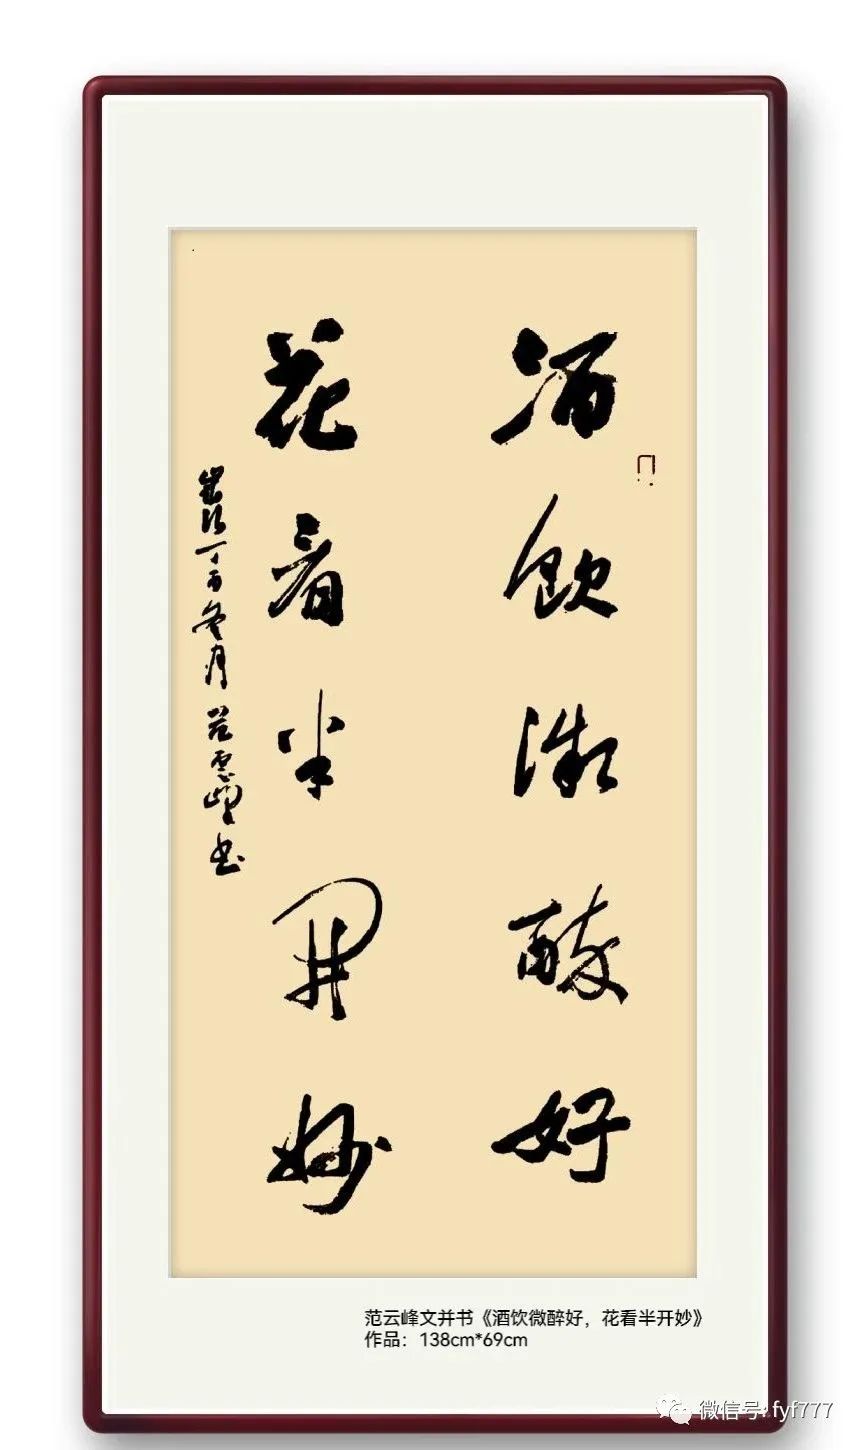 酒飲微醉好
花看半開妙
歲次丁酉冬月 范雲峰书
范云峰文并书《酒饮微醉好，花看半开妙》
作品：138cm*69cm
微信号: fyf777